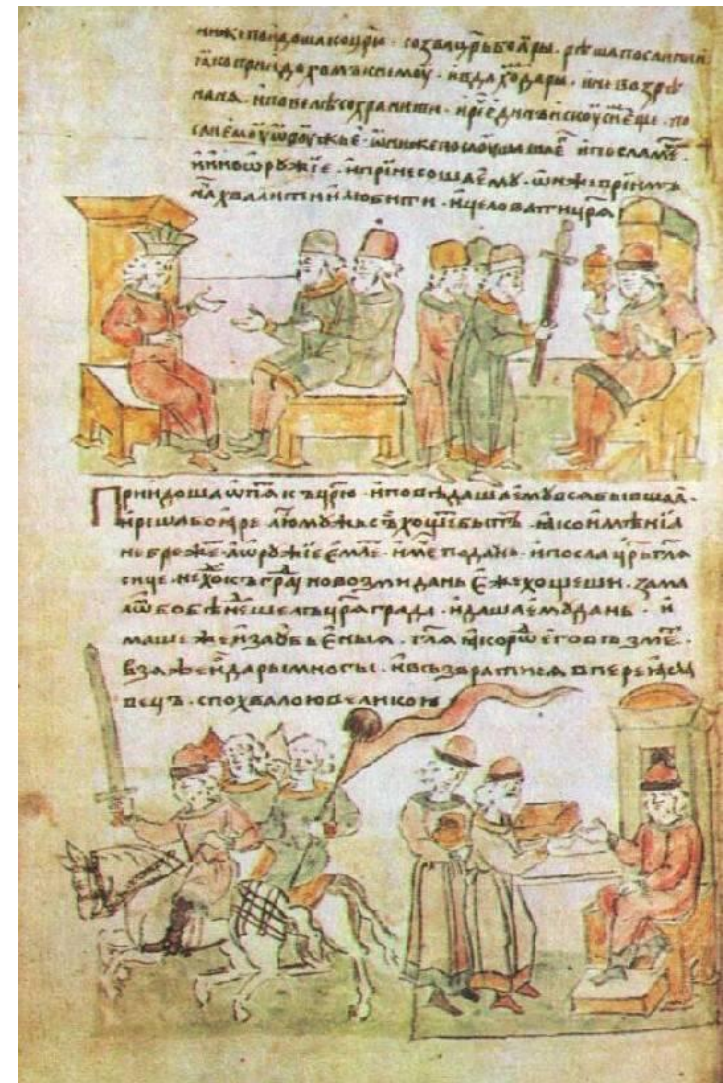 ѡниже поидоша ко цр҃ю · созва цр҃ь боꙗры · рѣша посланнїи
ꙗко приидохомъ к немоу · и вдахо дары · и не возрѣ
на нѧ · и повелѣ сохранити · и рⷱ҇е единъ искоуси еще · по
сли емоу ѡроужье · ѡни же послоушаша его и послаша емоу
и ино ѡружїе · и принесоша ему · ѡн же приимъ
на хвалити и любити · и целовати црѧ
Приидоша ѡпѧ къ црю · и повѣдаша ему всѧ бывшаꙗ ·
и рѣша боꙗре лю мужь сь хоще быть · ꙗко имѣниꙗ
не бреже а ѡружїе емле · име подань · и посла цр҃ь глѧ
сице · не хо къ градоу но возми дань еже хощеши · за мало
бо бѣ не шелъ црѧграда · и даша ему дань · и
маше же и за убьеныꙗ · глѧ ꙗко рѡ его возме ·
взѧ же и дары многы · и възвратисѧ в переꙗсла
вець · с похвалою великою